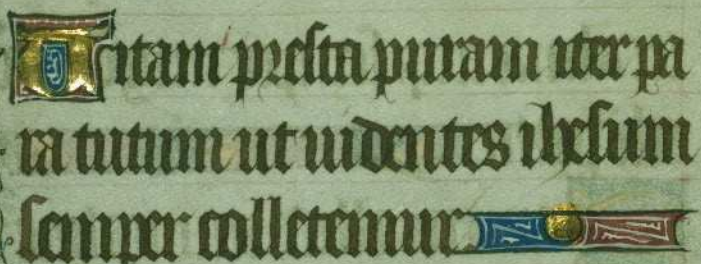 Vitam presta puram iter pa
ra tutum ut uidentes ihesum
semper colletemur